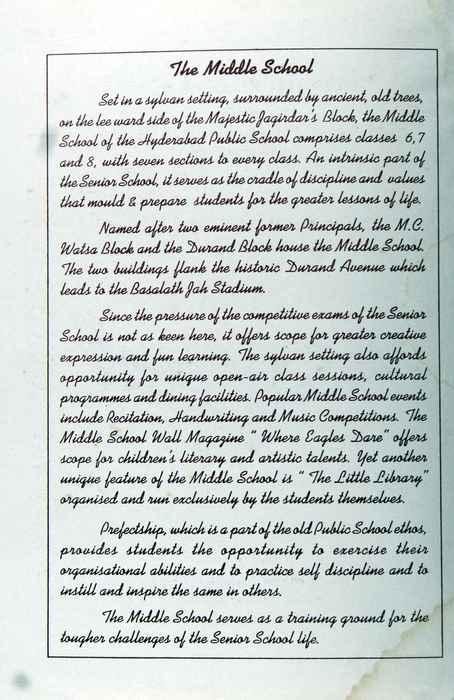 The Middle School
Set in a sylvan setting, surrounded by ancient, old trees,
on the lee ward side of the Majestic Jagirdar's Block, the Middle
School of the Hyderabad Public School comprises classes 6,7
and 8, with seven sections to every class. An intrinsic part of
the Senior School, it serves as the cradle of discipline and values
that mould & prepare students for the greater lessons of life.
Named after two eminent former Principals, the M.C.
Watsa Block and the Durand Block house the Middle School.
The two buildings flank the historic Durand Avenue which
leads to the Basalath Jah Stadium.
Since the pressure of the competitive exams of the Senior
School is not as keen here, it offers scope for greater creative
expression and fun learning. The sylvan setting also affords
opportunity for unique open-air class sessions, cultural
programmes and dining facilities. Popular Middle School events
include Recitation, Handwriting and Music Competitions. The
Middle School Wall Magazine " Where Eagles Dare" offers
scope for children's literary and artistic talents. Yet another
unique feature of the Middle School is " The Little Library"
organised and run exclusively by the students themselves.
Prefectship, which is a part of the old Public School ethos,
provides students the opportunity to exercise their
organisational abilities and to practice self discipline and to
instill and inspire the same in others.
The Middle School serves as a training ground for the
tougher challenges of the Senior School life.